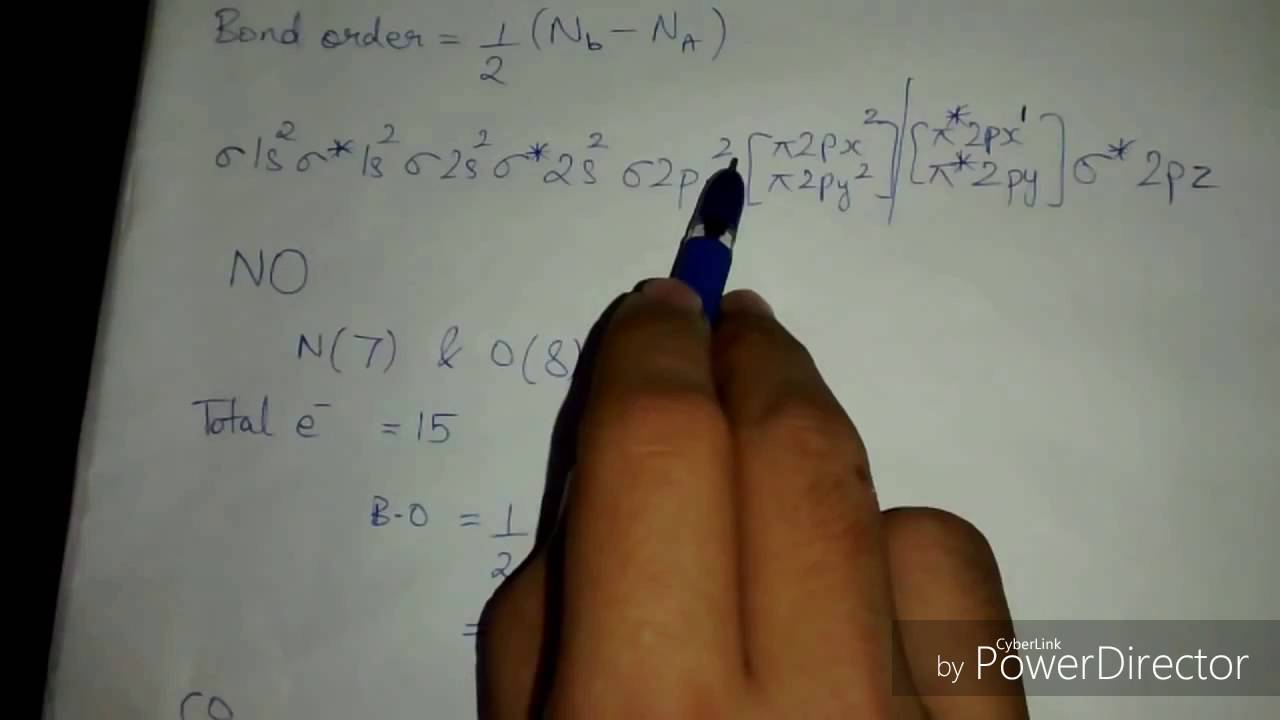 Bond order = 1/2 (Nb - NA)
σ1s² σ*1s² σ2s² σ*2s² σ2p² [π2px² π2py²] [π*2px¹ π*2py] σ*2pz
NO
N(7) & O(8)
Total e⁻ = 15
B-O = 1/2
=
CO
CyberLink
by PowerDirector